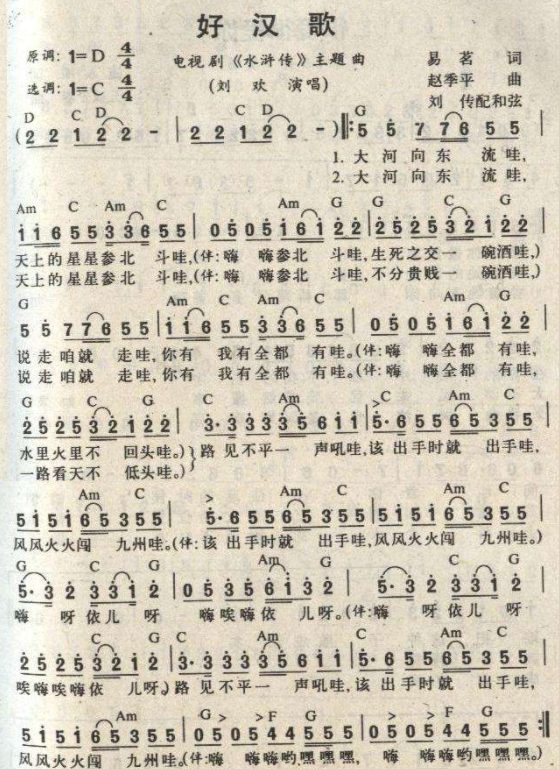 好 汉 歌
原调: 1=D 4/4
电视剧《水浒传》主题曲
易 茗 词
选调: 1=C 4/4
(刘 欢 演唱)
赵季平 曲
刘 传配和弦
D C D C D G
(2 2 1 2 2 - | 2 2 1 2 2 -)‖: 5 5 7 7 6 5 5
1. 大 河 向 东 流 哇,
2. 大 河 向 东 流 哇,
Am C Am C Am G C G
1 1 6 5 5 3 3 6 5 5 | 0 5 0 5 1 6 1 2 2 | 2 5 2 5 3 2 1 2 2
天上的星星参北 斗哇,(伴: 嗨 嗨参北 斗哇,生死之交一 碗酒哇,)
天上的星星参北 斗哇,(伴: 嗨 嗨参北 斗哇,不分贵贱一 碗酒哇,)
G Am C Am C Am G
5 5 7 7 6 5 5 | 1 1 6 5 5 3 3 6 5 5 | 0 5 0 5 1 6 1 2 2
说走咱就 走哇,你有 我有全都 有哇。(伴: 嗨 嗨全都 有哇,
说走咱就 走哇,你有 我有全都 有哇。(伴: 嗨 嗨全都 有哇,
G C G C Am > C Am C
2 5 2 5 3 2 1 2 2 | 3· 3 3 3 3 5 6 1 1 | 5· 6 5 5 6 5 3 5 5
水里火里不 回头哇。) 路 见不平一 声吼哇,该 出手时就 出手哇,
一路看天不 低头哇。)
Am C > Am C Am C
5 1 5 1 6 5 3 5 5 | 5· 6 5 5 6 5 3 5 5 | 5 1 5 1 6 5 3 5 5
风风火火闯 九州哇。(伴: 该 出手时就 出手哇,风风火火闯 九州哇。)
G C G Am G C G
5· 3 2 3 3 1 2 | 0 5 3 5 6 1 3 2 | 5· 3 2 3 3 1 2
嗨 呀 依 儿 呀 嗨 唉 嗨 依 儿 呀。(伴: 嗨 呀 依 儿 呀
C G C Am C Am C
2 5 2 5 3 2 1 2 | 3· 3 3 3 3 5 6 1 1 | 5· 6 5 5 6 5 3 5 5
唉嗨唉嗨依 儿呀。) 路 见不平一 声吼哇,该 出手时就 出手哇,
Am C G > > F G > > F G
5 1 5 1 6 5 3 5 5 | 0 5 0 5 4 4 5 5 5 | 0 5 0 5 4 4 5 5 5 :‖
风风火火闯 九州哇。(伴: 嗨 嗨嗨哟嘿嘿嘿, 嗨 嗨嗨哟嘿嘿嘿。)